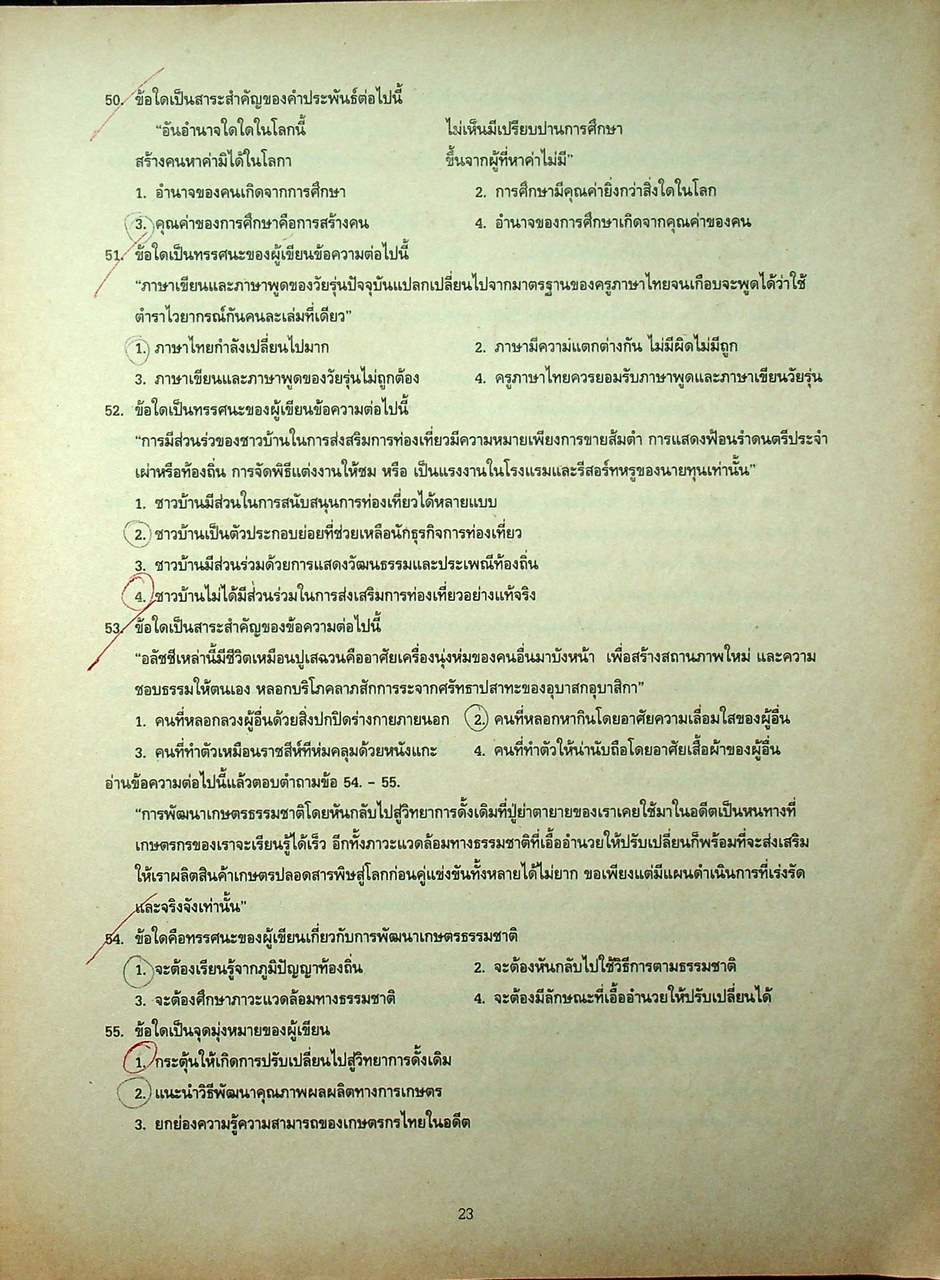 50. ข้อใดเป็นสาระสำคัญของคำประพันธ์ต่อไปนี้
"อันอำนาจใดใดในโลกนี้ ไม่เห็นมีเปรียบปานการศึกษา
สร้างคนหาค่ามิได้ในโลกา ขึ้นจากผู้ที่หาค่าไม่มี"
1. อำนาจของคนเกิดจากการศึกษา 2. การศึกษามีคุณค่ายิ่งกว่าสิ่งใดในโลก
3. คุณค่าของการศึกษาคือการสร้างคน 4. อำนาจของการศึกษาเกิดจากคุณค่าของคน
51. ข้อใดเป็นทรรศนะของผู้เขียนข้อความต่อไปนี้
"ภาษาเขียนและภาษาพูดของวัยรุ่นปัจจุบันแปลกเปลี่ยนไปจากมาตรฐานของครูภาษาไทยจนเกือบจะพูดได้ว่าใช้
ตำราไวยากรณ์กันคนละเล่มทีเดียว"
1. ภาษาไทยกำลังเปลี่ยนไปมาก 2. ภาษามีความแตกต่างกัน ไม่มีผิดไม่มีถูก
3. ภาษาเขียนและภาษาพูดของวัยรุ่นไม่ถูกต้อง 4. ครูภาษาไทยควรยอมรับภาษาพูดและภาษาเขียนวัยรุ่น
52. ข้อใดเป็นทรรศนะของผู้เขียนข้อความต่อไปนี้
"การมีส่วนร่วของชาวบ้านในการส่งสริมการท่องเที่ยวมีความหมายเพียงการขายส้มตำ การแสดงฟ้อนรำดนตรีประจำ
เผ่าหรือท้องถิ่น การจัดพิธีแต่งงานให้ชม หรือ เป็นแรงงานในโรงแรมและรีสอร์ทหรูของนายทุนเท่านั้น"
1. ชาวบ้านมีส่วนในการสนับสนุนการท่องเที่ยวได้หลายแบบ
2. ชาวบ้านเป็นตัวประกอบย่อยที่ช่วยเหลือนักธุรกิจการท่องเที่ยว
3. ชาวบ้านมีส่วนร่วมด้วยการแสดงวัฒนธรรมและประเพณีท้องถิ่น
4. ชาวบ้านไม่ได้มีส่วนร่วมในการส่งเสริมการท่องเที่ยวอย่างแท้จริง
53. ข้อใดเป็นสาระสำคัญของข้อความต่อไปนี้
"อลัชชีเหล่านี้มีชีวิตเหมือนปูเสฉวนคืออาศัยเครื่องนุ่งห่มของคนอื่นมาบังหน้า เพื่อสร้างสถานภาพใหม่ และความ
ชอบธรรมให้ตนเอง หลอกบริโภคลาภสักการระจากศรัทธาปสาทะของอุบาสกอุบาสิกา"
1. คนที่หลอกลวงผู้อื่นด้วยสิ่งปกปิดร่างกายภายนอก 2. คนที่หลอกหากินโดยอาศัยความเลื่อมใสของผู้อื่น
3. คนที่ทำตัวเหมือนราชสีห์ที่ห่มคลุมด้วยหนังแกะ 4. คนที่ทำตัวให้น่านับถือโดยอาศัยเสื้อผ้าของผู้อื่น
อ่านข้อความต่อไปนี้แล้วตอบคำถามข้อ 54. - 55.
"การพัฒนาเกษตรธรรมชาติโดยหันกลับไปสู่วิทยาการดั้งเดิมที่ปู่ย่าตายายของเราเคยใช้มาในอดีตเป็นหนทางที่
เกษตรกรของเราจะเรียนรู้ได้เร็ว อีกทั้งภาวะแวดล้อมทางธรรมชาติที่เอื้ออำนวยให้ปรับเปลี่ยนก็พร้อมที่จะส่งเสริม
ให้เราผลิตสินค้าเกษตรปลอดสารพิษสู่โลกก่อนคู่แข่งขันทั้งหลายได้ไม่ยาก ขอเพียงแต่มีแผนดำเนินการที่เร่งรัด
และจริงจังเท่านั้น"
54. ข้อใดคือทรรศนะของผู้เขียนเกี่ยวกับการพัฒนาเกษตรธรรมชาติ
1. จะต้องเรียนรู้จากภูมิปัญญาท้องถิ่น 2. จะต้องหันกลับไปใช้วิธีการตามธรรมชาติ
3. จะต้องศึกษาภาวะแวดล้อมทางธรรมชาติ 4. จะต้องมีลักษณะที่เอื้ออำนวยให้ปรับเปลี่ยนได้
55. ข้อใดเป็นจุดมุ่งหมายของผู้เขียน
1. กระตุ้นให้เกิดการปรับเปลี่ยนไปสู่วิทยาการดั้งเดิม
2. แนะนำวิธีพัฒนาคุณภาพผลผลิตทางการเกษตร
3. ยกย่องความรู้ความสามารถของเกษตรกรไทยในอดีต
23